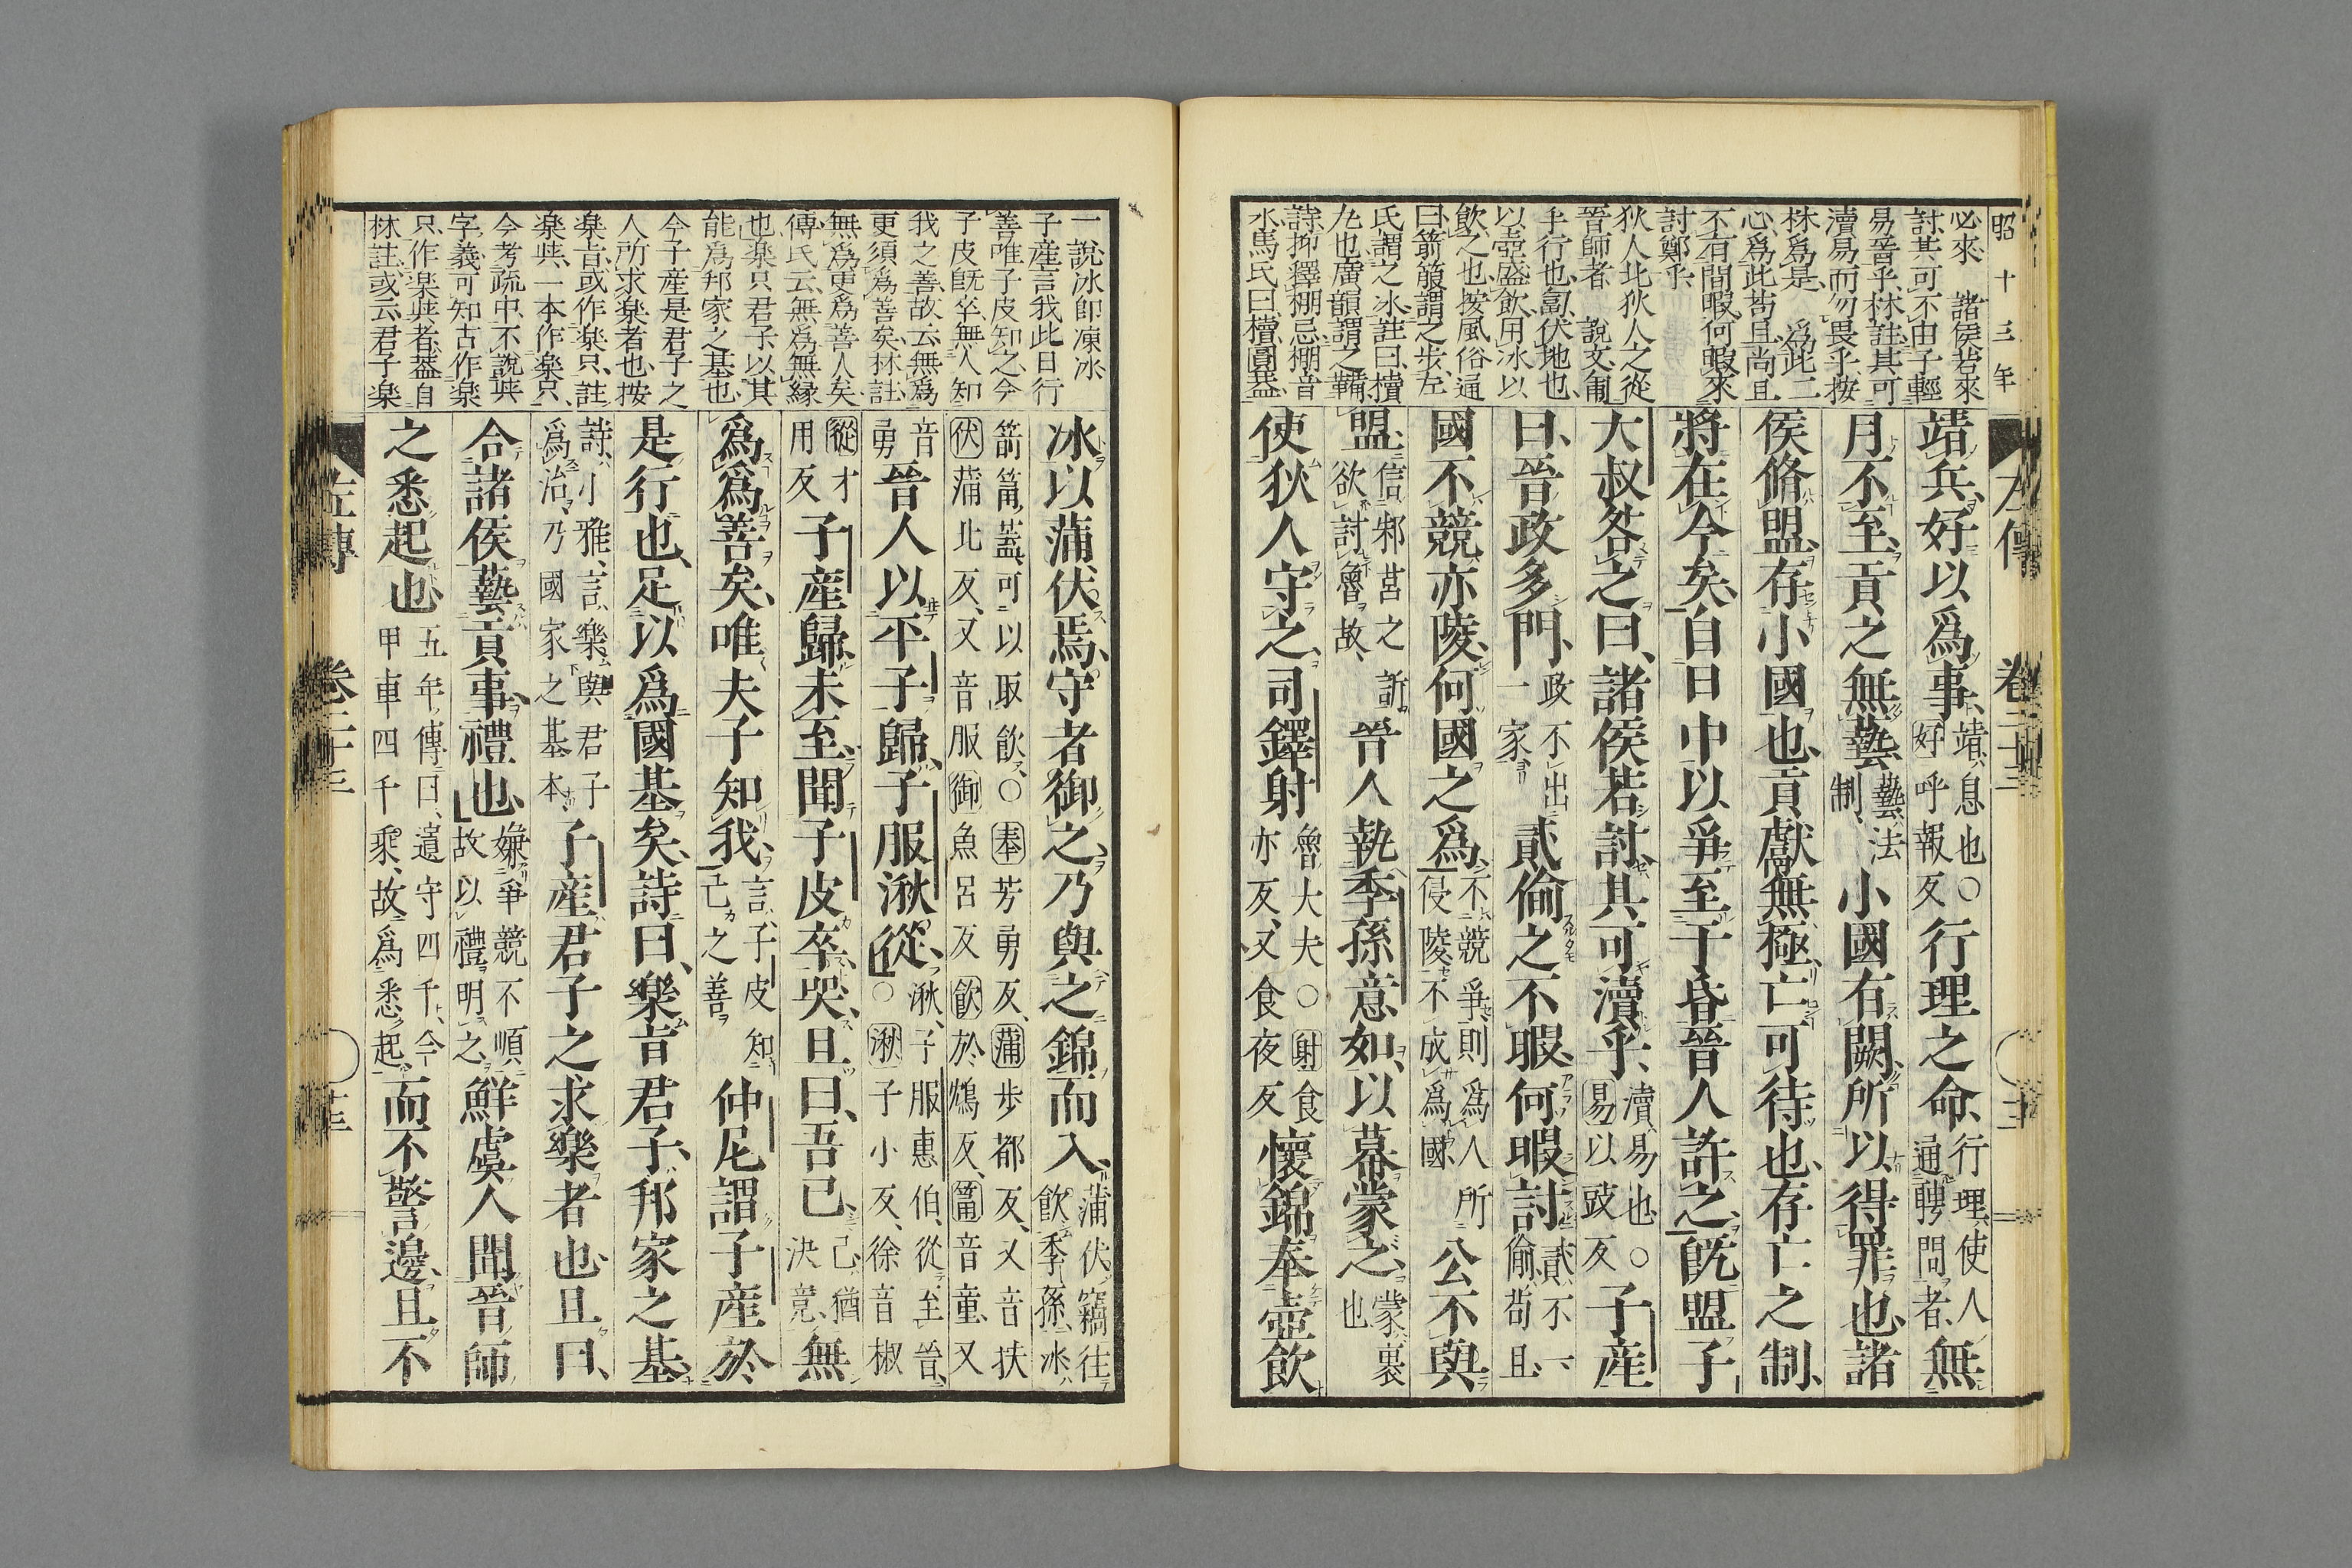 昭十三年
必來 諸侯若來
討其可不由子輕
易晉乎林註其可
瀆易而勿畏乎按
林爲是 爲此二
心爲此苟且尚且
不有間暇何暇來
討鄭乎
狄人北狄人之從
晉師者 說文匍
手行也匐伏地也
以壺盛飲用冰以
飲之也按風俗通
曰箭箙謂之步左
氏謂之冰註曰櫝
丸也廣韻謂之鞴
詩抑釋掤忌掤音
氷馬氏曰櫝圓葢
靖兵好以爲事靖息也○好呼報反行理之命行理使人通聘問者無
月不至貢之無藝藝法制小國有闕所以得罪也諸
侯脩盟存小國也貢獻無極亡可待也存亡之制
將在今矣自日中以爭至于昏晉人許之旣盟子
大叔咎之曰諸侯若討其可瀆乎瀆易也○易以豉反子產
曰晉政多門政不出一家貳偷之不暇何暇討貳不一偷苟且
國不競亦陵何國之爲不競爭則爲人所侵陵不成爲國公不與
盟信邾莒之訴欲討魯故晉人執季孫意如以幕蒙之蒙裹也
使狄人守之司鐸射魯大夫○射食亦反又食夜反懷錦奉壺飲
左傳 卷二十三
一說冰卽凍冰
子產言我此日行
善唯子皮知之今
子皮旣卒無人知
我之善故云無爲
更須爲善矣林註
無爲更爲善人矣
傳氏云無爲無緣
也樂只君子以其
能爲邦家之基也
今子產是君子之
人所求樂者也按
樂㫖或作樂只註
樂與一本作樂只
今考疏中不說與
字義可知古作樂
只作樂與者葢自
林註或云君子樂
冰以蒲伏焉守者御之乃與之錦而入蒲伏竊往飲季孫冰
箭筩葢可以取飲○奉芳勇反蒲步都反又音扶伏蒲北反又音服御魚呂反飲於鴆反筩音童又
音勇晉人以平子歸子服湫從湫子服惠伯從至晉○湫子小反徐音椒
從才用反子產歸未至聞子皮卒哭且曰吾已已猶決意無
爲爲善矣唯夫子知我言子皮知己之善仲尼謂子產於
是行也足以爲國基矣詩曰樂㫖君子邦家之基
詩小雅言樂與君子爲治乃國家之基本子產君子之求樂者也且曰
合諸侯藝貢事禮也嫌爭競不順故以禮明之鮮虞人聞晉師
之悉起也五年傳曰遺守四千今甲車四千乘故爲悉起而不警邊且不
左傳 卷二十三